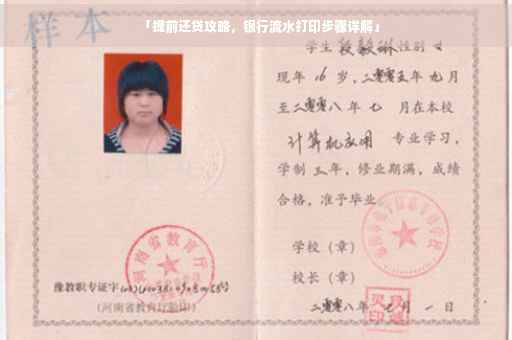 「提前还贷攻略，银行流水打印步骤详解」
样本
学生段毅琳性别女
现年16岁，二零零五年九月
至二零零八年七月在本校
计算机应用专业学习，
学制三年，修业期满，成绩
合格，准予毕业。
学校（章）
校长（章）
二零零八年七月一日
河南省教育厅
豫教职专证字
（河南省教育厅验印）